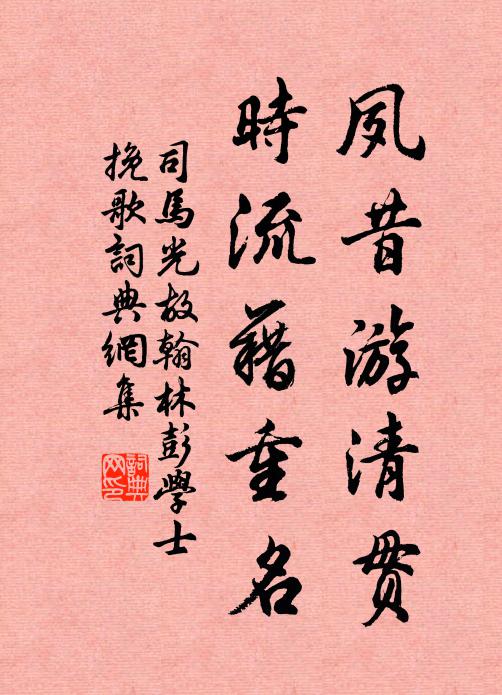 夙昔游清贯
時流藉重名
司馬光故翰林彭學士
挽歌詞典網集
詞典网印